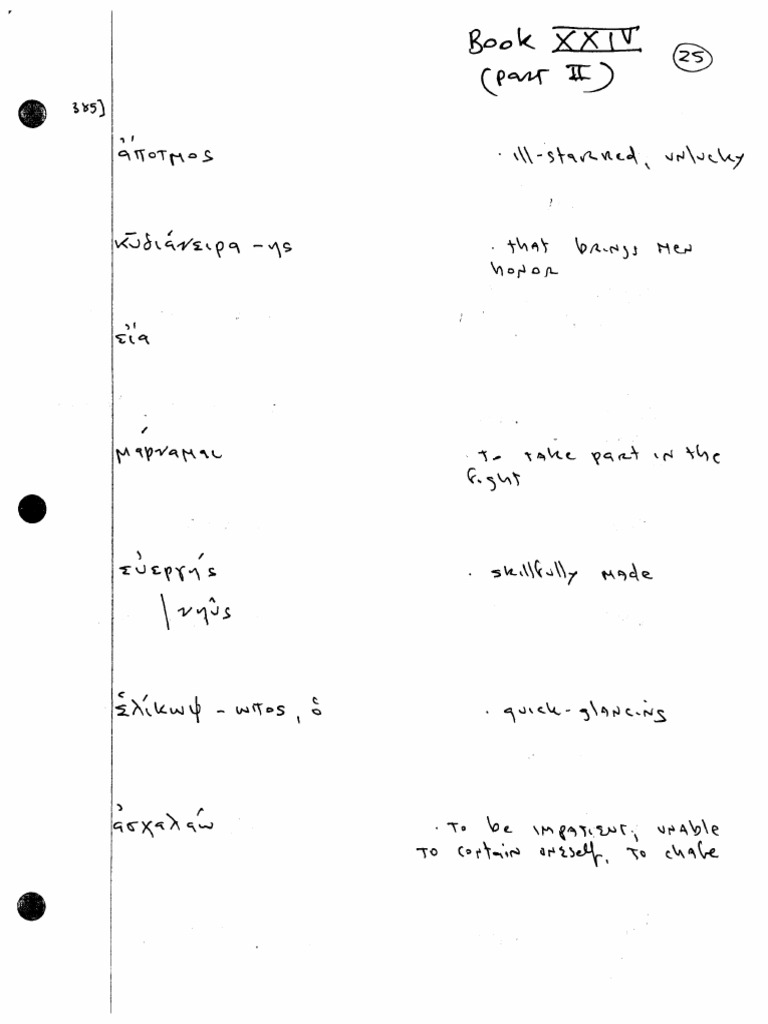 Book XXIV
(part II)
25
385]
ἄποτμος · ill-starred, unlucky
κῡδιάνειρα -ης · that brings men
honor
εἴα
μάρναμαι · to take part in the
fight
εὐεργής · skillfully made
νηῦς
ἑλίκωψ - ωπος, ὁ · quick-glancing
ἀσχαλάω · to be impatient, unable
to contain oneself, to chafe